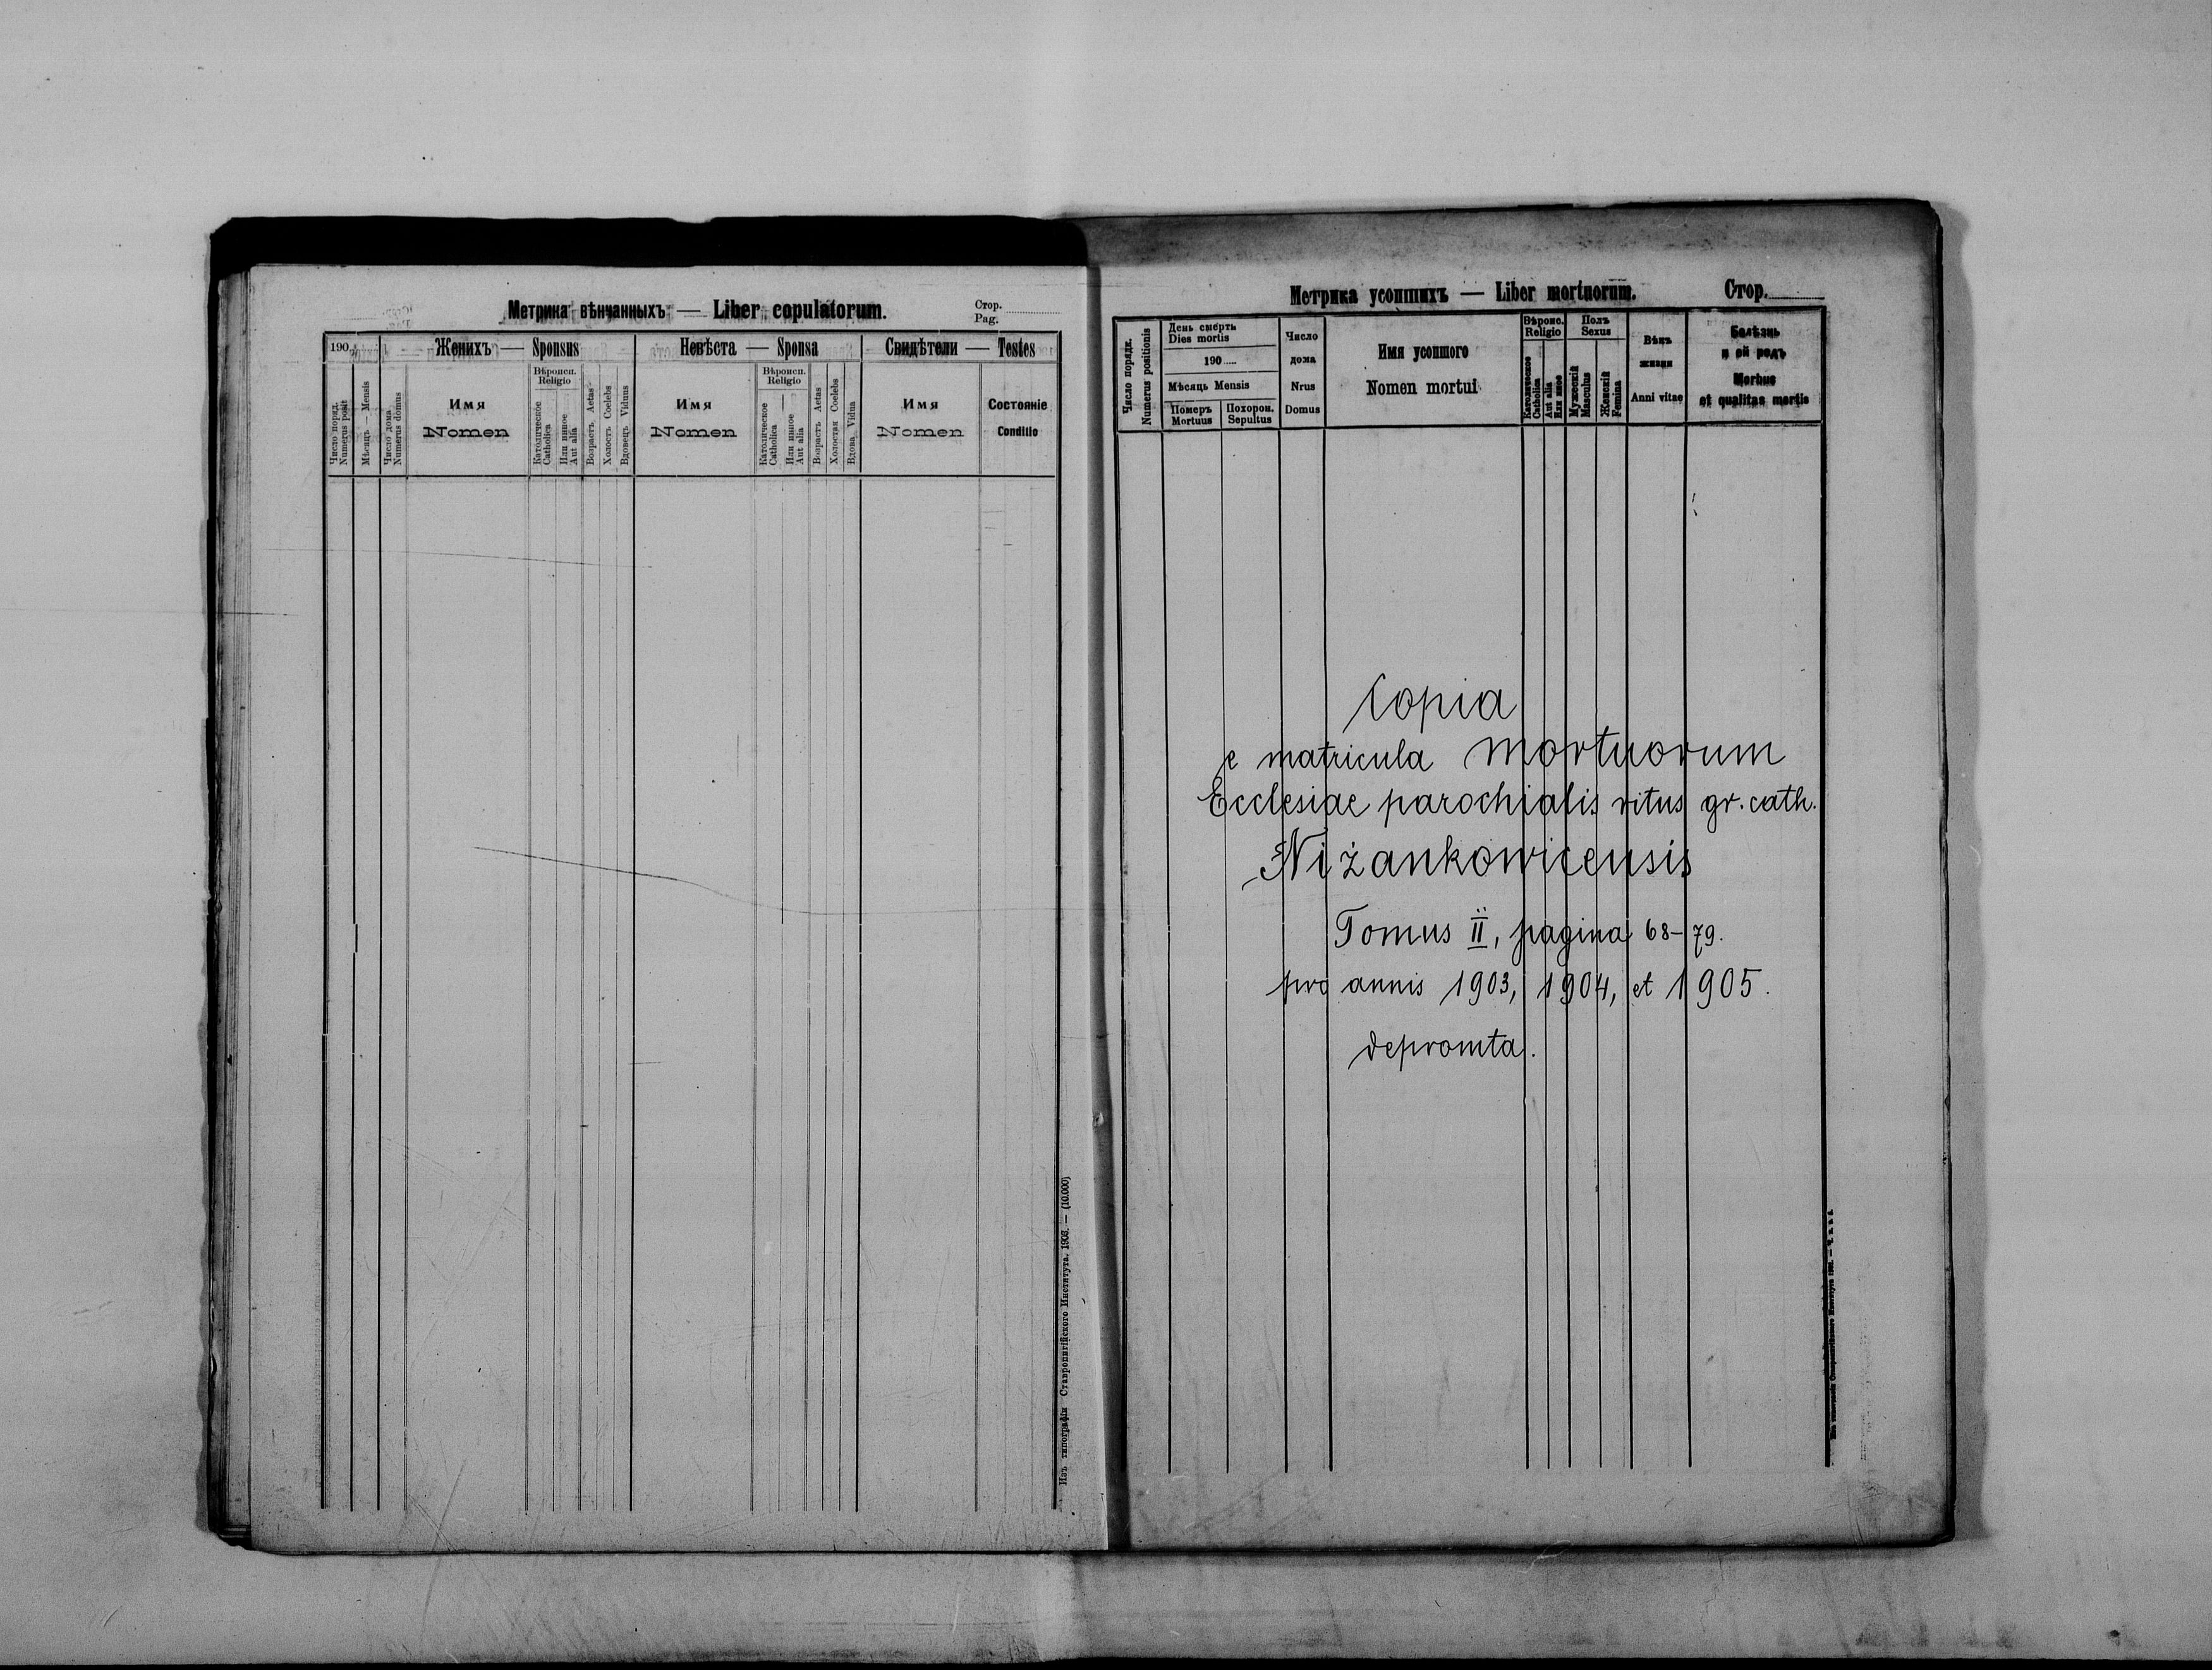 Метрика вѣнчанныхъ — Liber copulatorum.
Стор.
Pag.
190
Женихъ — Sponsus
Невѣста — Sponsa
Свидѣтели — Testes
Число поряд.
Numerus posit
Мѣсяць — Mensis
Число дома
Numerus domus
Имя
Nomen
Вѣроисп.
Religio
Католическое
Catholica
Или инное
Aut alia
Возрастъ Aetas
Холостъ Coelebs
Вдовецъ Viduus
Имя
Nomen
Вѣроисп.
Religio
Католическое
Catholica
Или инное
Aut alia
Возрастъ Aetas
Холостая Coelebs
Вдова Vidua
Имя
Nomen
Состояніе
Conditio
Изъ типографіи Ставропигійского Института. 1903. — (10.000)
Метрика усопшихъ — Liber mortuorum.
Стор.
Число порядк.
Numerus positionis
День смерть
Dies mortis
190
Мѣсяць Mensis
Померъ
Mortuus
Похорон.
Sepultus
Число
дома
Nrus
Domus
Имя усопшого
Nomen mortui
Вѣроис.
Religio
Католическое
Catholica
Aut alia
Или иное
Полъ
Sexus
Мужескій
Masculus
Женскій
Femina
Вѣкъ
жизни
Anni vitae
Болѣзнь
и ей родъ
Morbus
et qualitas mortis
Copia
e matricula mortuorum
Ecclesiae parochialis ritus gr. cath.
Niżankowicensis
Tomus II, pagina 68–79.
pro annis 1903, 1904, et 1905.
depromta.